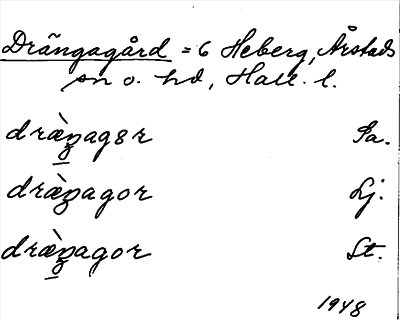 Drängagård = 6 Heberg, Årstads
sn o. hd, Hall. l.
dræ̀ŋagər Sa.
dræ̀ŋagor Lj.
dræ̀ŋagor St.
1948